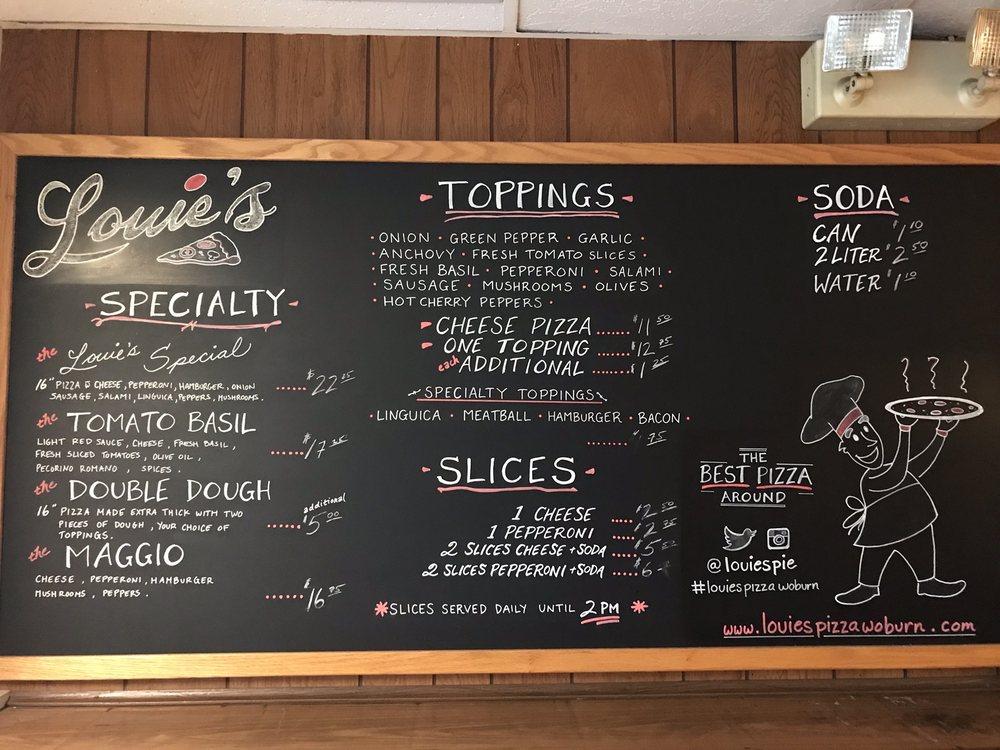 Louie's
SPECIALTY
the Louie's Special
16" PIZZA CHEESE, PEPPERONI, HAMBURGER, ONION
SAUSAGE, SALAMI, LINGUICA, PEPPERS, MUSHROOMS.
......$22
the TOMATO BASIL
LIGHT RED SAUCE, CHEESE, FRESH BASIL,
FRESH SLICED TOMATOES, OLIVE OIL,
PECORINO ROMANO, SPICES.
......$17
the DOUBLE DOUGH
16" PIZZA MADE EXTRA THICK WITH TWO
PIECES OF DOUGH, YOUR CHOICE OF
TOPPINGS.
additional
......$5 00
the MAGGIO
CHEESE, PEPPERONI, HAMBURGER
MUSHROOMS, PEPPERS.
......$16 95
- TOPPINGS -
· ONION · GREEN PEPPER · GARLIC ·
· ANCHOVY · FRESH TOMATO SLICES ·
· FRESH BASIL · PEPPERONI · SALAMI ·
· SAUSAGE · MUSHROOMS · OLIVES ·
· HOT CHERRY PEPPERS ·
- CHEESE PIZZA.......$11 50
- ONE TOPPING.......$12
each ADDITIONAL.......$1
SPECIALTY TOPPINGS
· LINGUICA · MEATBALL · HAMBURGER · BACON ·
........
- SLICES -
1 CHEESE .....$2 50
1 PEPPERONI .....$2
2 SLICES CHEESE + SODA .....$5
2 SLICES PEPPERONI + SODA .....$6
*SLICES SERVED DAILY UNTIL 2 PM *
- SODA -
CAN $1 10
2 LITER $2 50
WATER $1 10
THE
BEST PIZZA
AROUND
@louiespie
#louiespizzawoburn
www.louiespizzawoburn.com